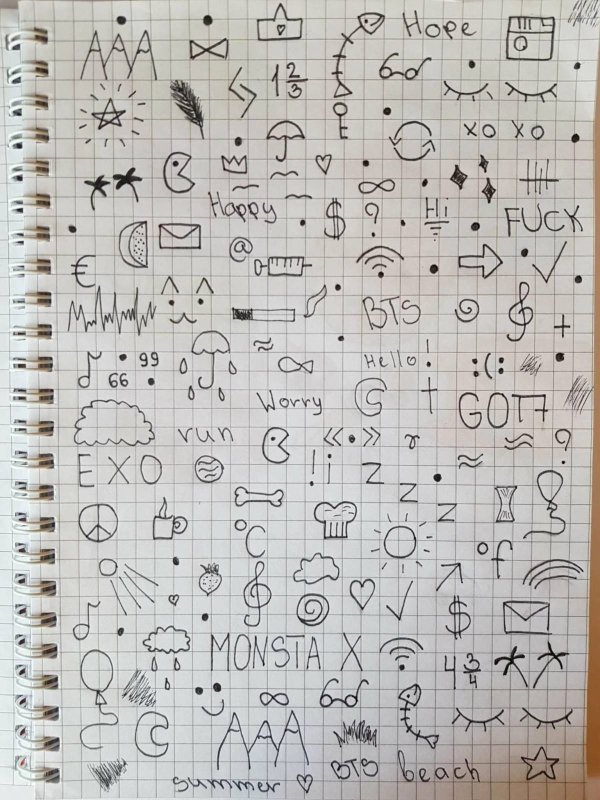 Hope
1 2/3
xo xo
Happy
$ ? Hi FUCK
@
€
BTS
99
66
Hello! :(:
Worry
GOT7
run « • » r ?
EXO
! i z
z
z
°C
°f
$
MONSTA X
4 3/4
BTS beach
summer